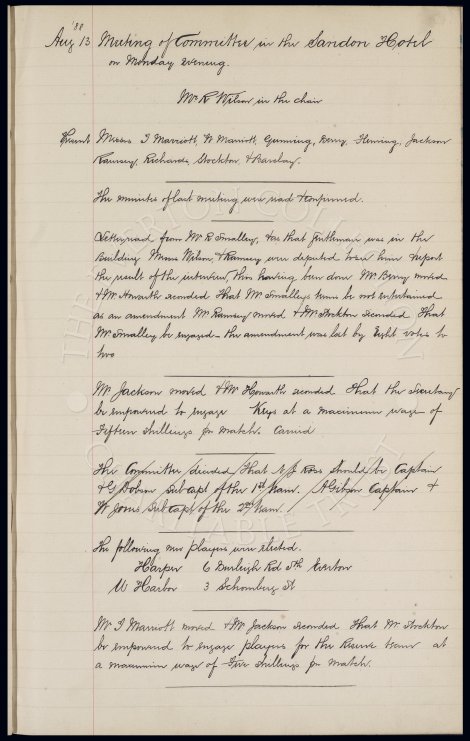 '88
Aug 13 Meeting of Committee in the Sandon Hotel
on Monday evening.
Mr R Wilson in the chair
Present Messrs J Marriott, W Marriott, Gunning, Berry, Fleming, Jackson
Ramsey, Richards, Stockton, & Barclay.
The minutes of last meeting were read & confirmed.
Letter read from Mr R Smalley, & as that gentleman was in the
Building Messrs Wilson, & Ramsey were deputed to see him & report
the result of the interview, this having been done Mr Berry moved
& Mr Howarth seconded That Mr Smalleys terms be not entertained
as an amendment Mr Ramsey moved & Mr Stockton seconded That
Mr Smalley be engaged – the amendment was lost by Eight votes to
two
Mr Jackson moved & Mr Howarth seconded That the Secretary
be empowered to engage Keys at a maximum wage of
Fifteen shillings per match. Carried
The Committee decided That N J Ross should be Captain
& G Dobson Sub capt of the 1st team. A Gibson Captain &
W Jones Sub capt of the 2nd team.
The following new players were elected.
Harper 6 Burleigh Rd Sth Everton
W Harbor 3 Schomberg St
Mr J Marriott moved & Mr Jackson seconded That Mr Stockton
be empowered to engage players for the Reserve team at
a maximum wage of Five shillings per match.
THE EVERTON COLLECTION
CHARITABLE TRUST